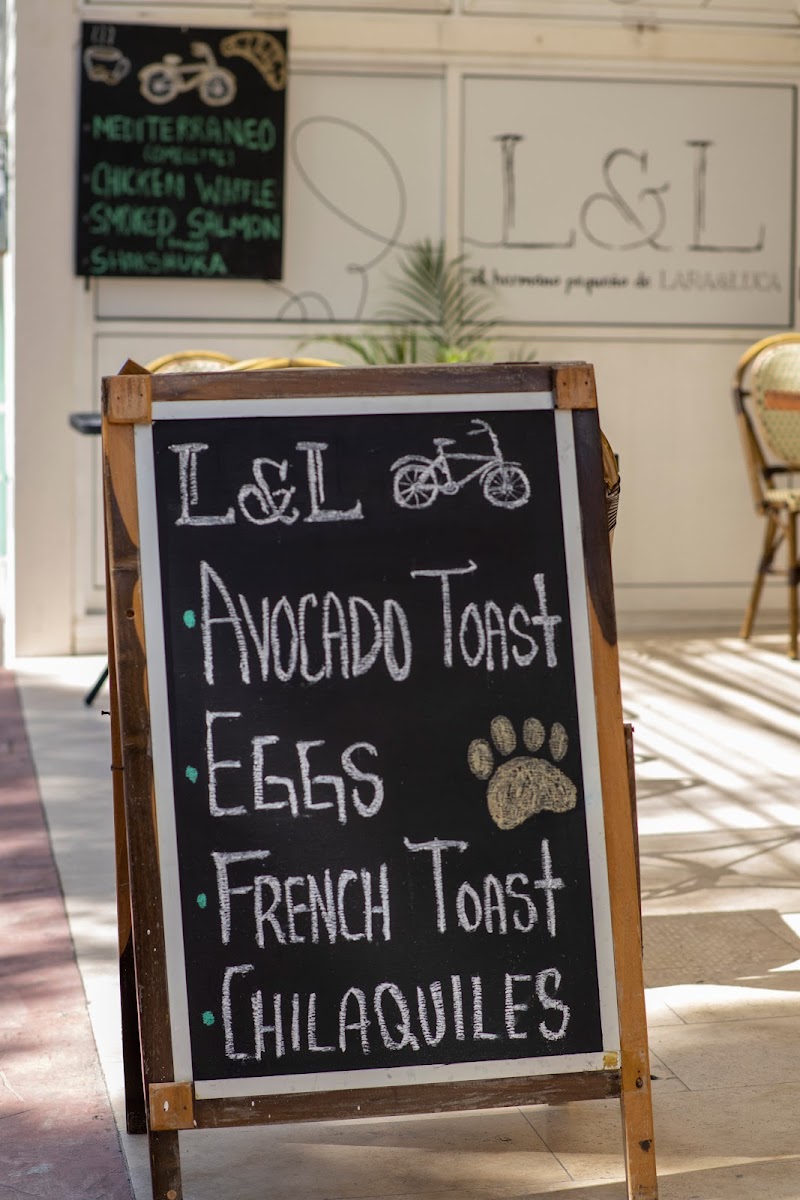 MEDITERRANEO
(OMELETTE)
CHICKEN WAFFLE
SMOKED SALMON
SHAKSHUKA
L&L
el hermano pequeño de LARA&LUCA
L&L
AVOCADO TOAST
EGGS
FRENCH TOAST
CHILAQUILES